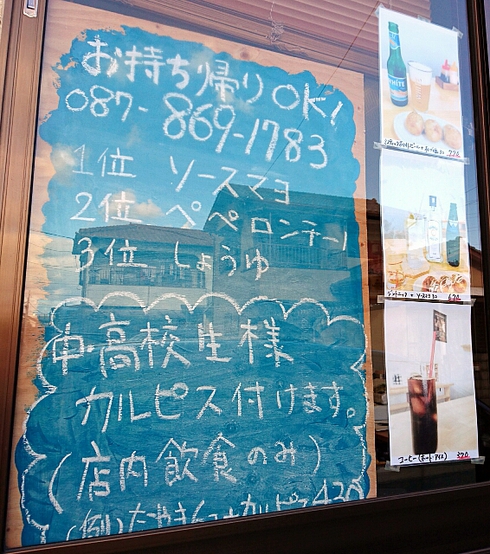 お持ち帰りOK!
087-869-1783
1位 ソースマヨ
2位 ペペロンチーノ
3位 しょうゆ
中・高校生様
カルピス付けます。
(店内飲食のみ)
(例)たやき
カルピス 420
770
620
コーヒー
320